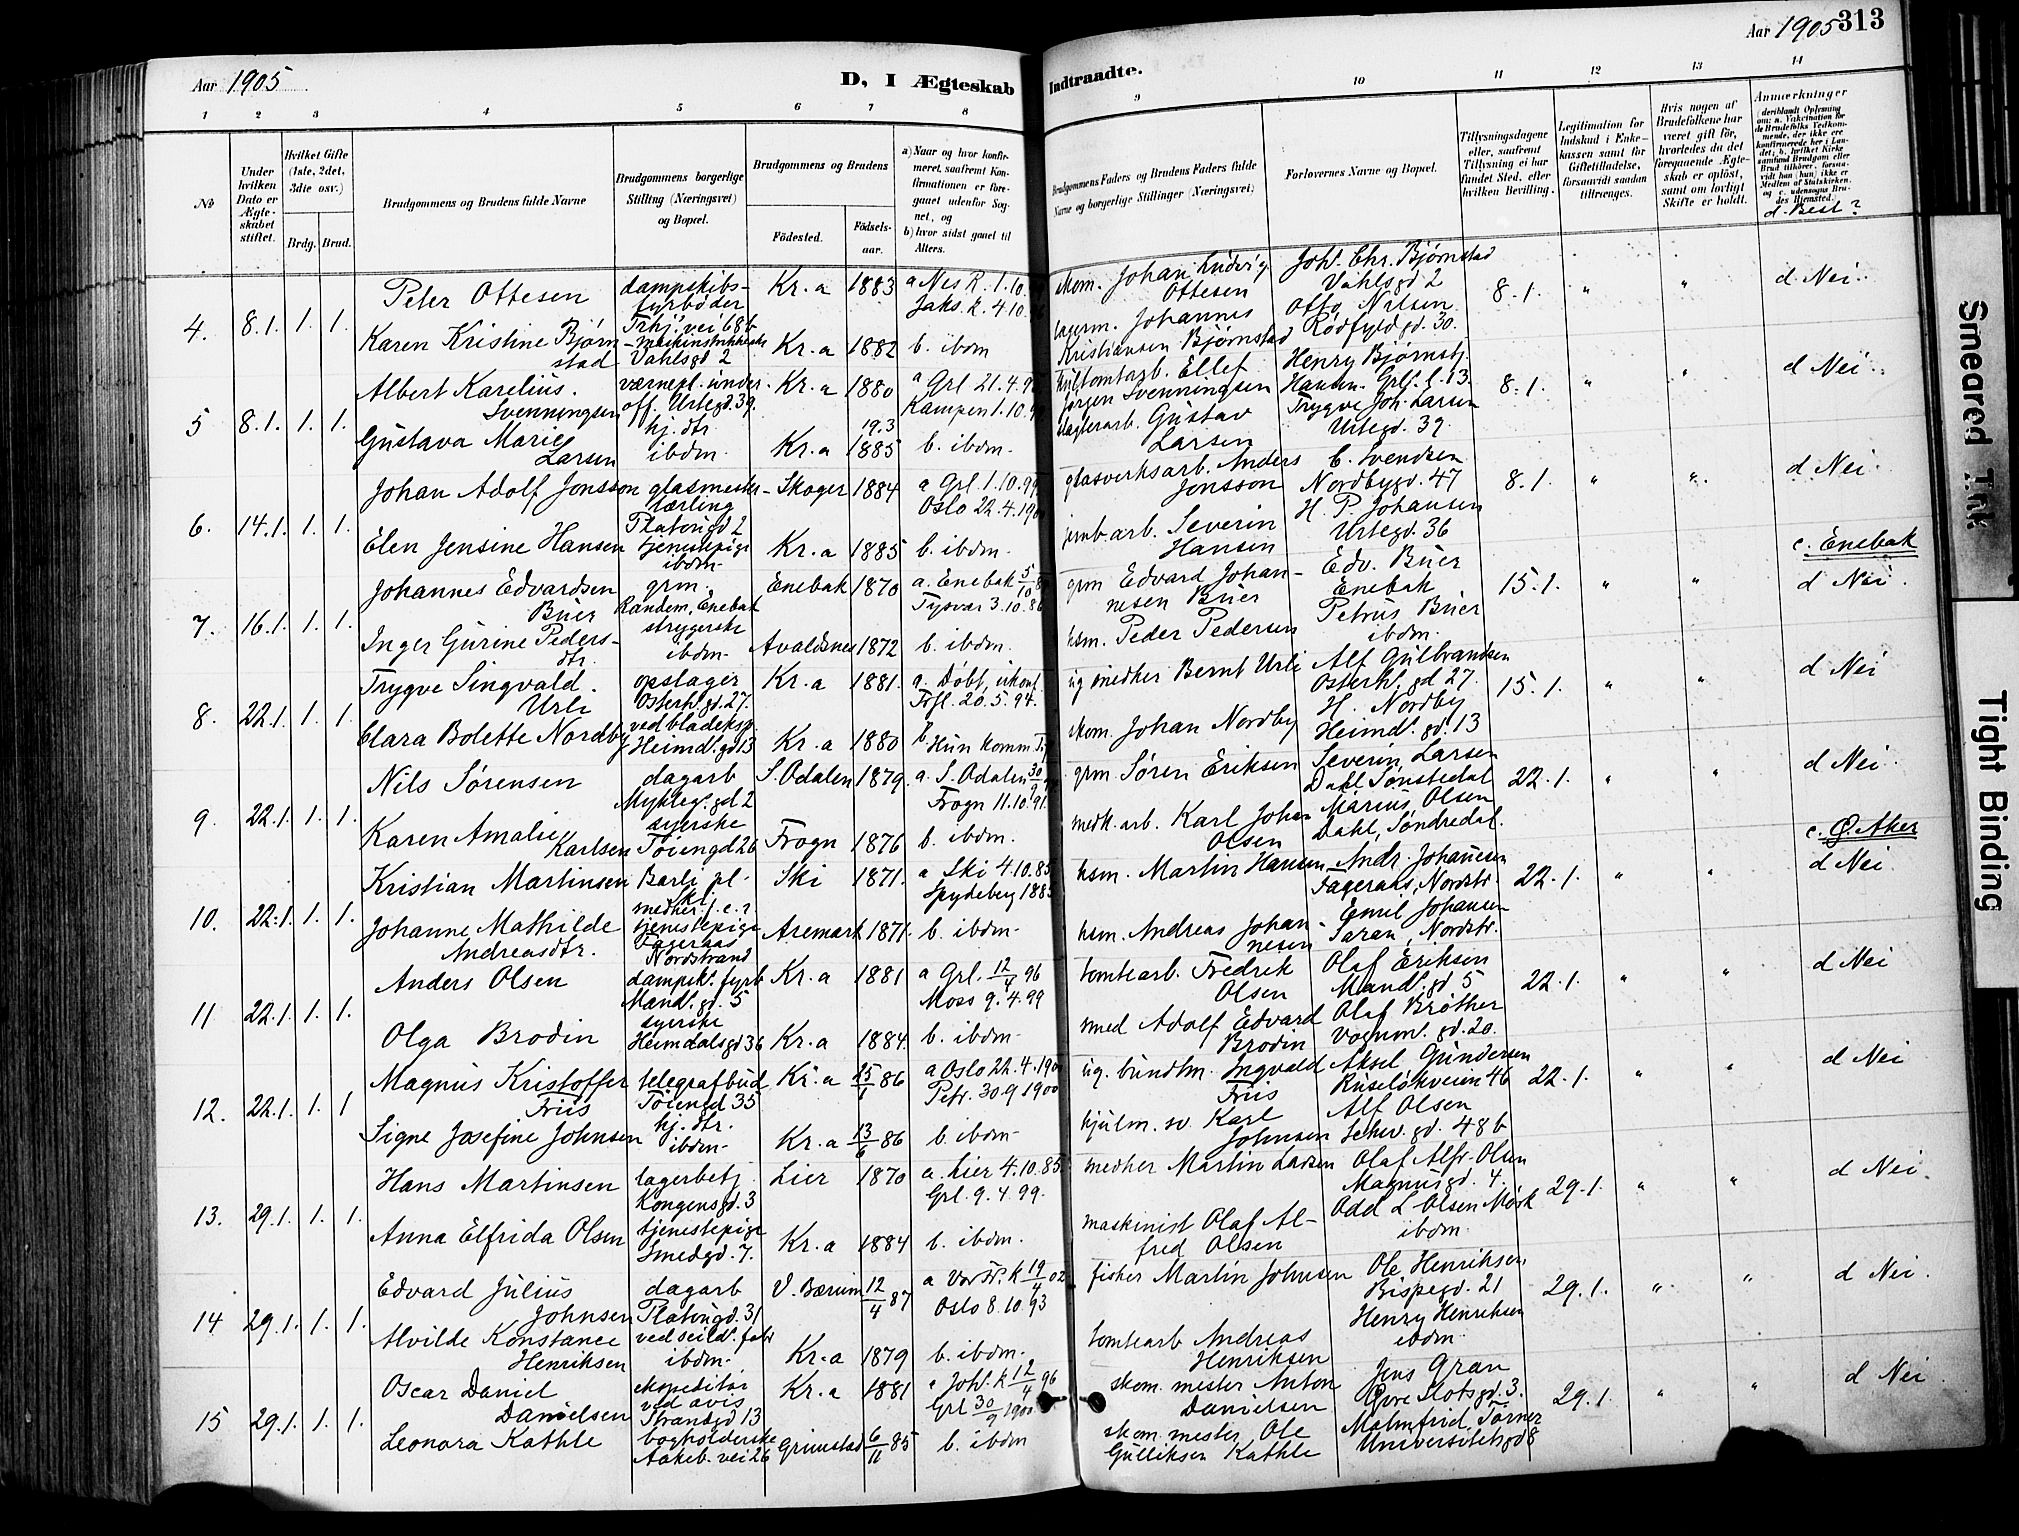 Aar 1905
D, I Ægteskab
Indtraadte.
Aar 1905 313
1 2 3 4 5 6 7 8 9 10 11 12 13 14
No
Under hvilken Dato er Ægteskabet stiftet.
Hvilket Gifte (1ste, 2det, 3die osv.)
Brdg. Brud.
Brudgommens og Brudens fulde Navne
Brudgommens borgerlige Stilling (Næringsvei) og Bopæl.
Brudgommens og Brudens
Fødested. Fødselsaar.
a) Naar og hvor konfirmeret, saafremt Konfirmationen er foregaaet udenfor Sognet, og
b) hvor sidst gaaet til Alters.
Brudgommens Faders og Brudens Faders fulde Navne og borgerlige Stillinger (Næringsvei)
Forlovernes Navne og Bopæl.
Tillysningsdagene eller, saafremt Tillysning ei har fundet Sted, efter hvilken Bevilling.
Legitimation for Indskud i Enkekassen samt for Giftetilladelse, forsaavidt saadan tiltrænges.
Hvis nogen af Brudefolkene har været gift før, hvorledes da det foregaaende Ægteskab er opløst, samt om lovligt Skifte er holdt.
Anmærkninger
d. Besl.?
4. 8.1. 1. 1.
Peter Ottesen
dampskibsfyrbøder
Trhj. vei 68b
Kr.a 1883
a Nes K. 1.10.
Jaks. k. 4.10.
skom. Johan Ludvig Ottesen
Joh. Chr. Bjørnstad
Vahlsgd 2
8.1. " " d Nei.
Karen Kristine Bjørnstad
Vahlsgd 2
Kr.a 1882
b. ibdm
lagerm. Johannes Kristiansen Bjørnstad
Otto Nilsen
Rødfyldgd. 30.
5 8.1. 1. 1.
Albert Karelius Svenningsen
værnepl. underoff. Urtegd. 39.
Kr.a 1880
a Grl 21.4.
Kampen 1.10.
Ellef Jørgen Svenningsen
Henry Bjørnstj. Hansen. Grlf. l. 13.
8.1. " " d Nei.
Gustava Marie Larsen
hj. dtr ibdm.
Kr.a 19.3 1885
b. ibdm.
slagterarb. Gustav Larsen
Trygve Joh. Larsen
Urtegd. 39.
6. 14.1. 1. 1.
Johan Adolf Jonsson
glasmesterlærling
Platougd 2
Skoger 1884
a Grl. 1.10.99
Oslo 22.4.
glasverksarb. Anders Jonsson
C. Svendsen
Nordbygd. 47
8.1. " " d Nei.
Elen Jensine Hansen
tjenestepige
ibdm
Kr.a 1885
b. ibdm.
jernb.arb. Severin Hansen
H. P. Johansen
Urtegd. 36
7. 16.1. 1. 1.
Johannes Edvardsen Buer
grm.
Randem, Enebak
Enebak 1870
a. Enebak 5/10
Tysvær 3.10.86
grm Edvard Johannesen Buer
Edv. Buer
Enebak
15.1. " "
c. Enebak
d Nei.
Inger Gurine Pedersdtr.
strygerske
ibdm
Avaldsnes 1872
b. ibdm.
hsm. Peder Pedersen
Petrus Buer
ibdm.
8. 22.1. 1. 1.
Trygve Singvald Urli
opslager
Osterh. gd. 27.
Kr.a 1881.
a. Døbt, ukonf.
Frfl. 20.5.94.
ug snedker Bernt Urli
Alf Gulbrandsen
Osterh. gd 27.
15.1. " " d Nei
Clara Bolette Nordby
ved bladeksp.
Heimdl. gd 13
Kr.a 1880
b. Hun komm.
skom. Johan Nordby
H. Nordby
Heimdl. gd. 13
9. 22.1. 1. 1.
Nils Sørensen
dagarb
Mykleg. gd 2
S. Odalen 1879.
a. S. Odalen 30/9
Frogn 11.10.91.
grm Søren Eriksen
Severin Larsen
Dahl Sønstedal
22.1. " " d Nei.
Karen Amalie Karlsen
syerske
Tøiengd 26
Frogn 1876
b. ibdm.
medh. arb. Karl Johan Olsen
Marius Olsen
Dahl, Søndredal.
10. 22.1. 1. 1.
Kristian Martinsen
Barli pl.
Ski 1871.
a Ski 4.10.85
Spydeberg 1885
hsm. Martin Hansen
Andr. Johansen
Fageraas, Nordstr.
22.1. " "
c. Ø. Aker
d Nei
Johanne Mathilde Andreasdtr.
tjenestepige
Fageraas
Nordstrand
Aremark 1871.
b. ibdm.
hsm. Andreas Johannesen
Emil Johansen
Saran, Nordstr.
11 22.1. 1. 1.
Anders Olsen
dampsk. fyrb
Mandl. gd. 5
Kr.a 1881
a Grl. 12/4 96
Moss 9.4.99
tomtearb. Fredrik Olsen
Olaf Eriksen
Mandl. gd 5
22.1. " " d Nei
Olga Brodin
syerske
Heimdalsgd 36
Kr.a 1884.
b. ibdm.
smed Adolf Edvard Brodin
Olaf Brøther
Vognm. gd. 20.
12. 22.1. 1. 1
Magnus Kristoffer Friis
telegrafbud
Tøiengd 35
Kr.a 15/1 86
a Oslo 22.4.190
Petr. 30.9.1900
ug. bundtm. Ingvald Friis
Aksel Gundersen
Ruseløkveien 46
22.1. " " d Nei
Signe Josefine Johnsen
hj. dtr.
ibdm.
Kr.a 13/6 86
b. ibdm.
hjulm. sv. Karl Johnsen
Alf Olsen
Schw. gd. 48 b
13. 29.1. 1. 1.
Hans Martinsen
lagerbetj.
Kongensgd. 3
Lier 1870
a. Lier 4.10.85
Grl. 9.4.99.
snedker Martin Larsen
Olaf Alfr. Olsen
Magnusgd. 4.
29.1. " " d Nei.
Anna Elfrida Olsen
tjenestepige
Smedgd. 7.
Kr.a 1884
b. ibdm.
maskinist Olaf Alfred Olsen
Odd L. Olsen Mørk
ibdm.
14 29.1. 1. 1.
Edvard Julius Johnsen
dagarb
Platougd. 31
V. Bærum 12/4 87
a Vor Fr. k 19/4 02
Oslo 8.10.93
fisker Martin Johnsen
Ole Henriksen
Bispegd. 21
29.1. " " d Nei.
Alvilde Konstance Henriksen
ved seild. fabr
ibdm.
Kr.a 1879
b. ibdm.
tomtearb Andreas Henriksen
Henry Henriksen
ibdm.
15 29.1. 1. 1.
Oscar Daniel Danielsen
ekspeditør ved avis
Strandgd 13
Kr.a 1881
a Joh. k 12/4 96
Grl 30/9 1900
skom. mester Anton Danielsen
Jens Gran
Øvre Slotsgd. 3.
29.1. " " d Nei
Leonora Kathle
bogholderske
Aakeb. vei 26
Grimstad 6/11 85
b. ibdm
skom. mester Ole Gulliksen Kathle
Malmfrid Tørner
Universitetsgd 8
Smeared Ink
Tight Binding